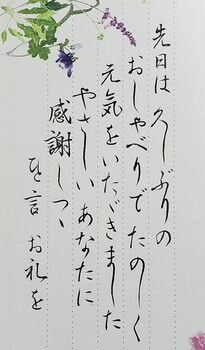 先日は久しぶりの
おしゃべりでたのしく
元気をいただきました
やさしいあなたに
感謝しつゝ
ひと言お礼を